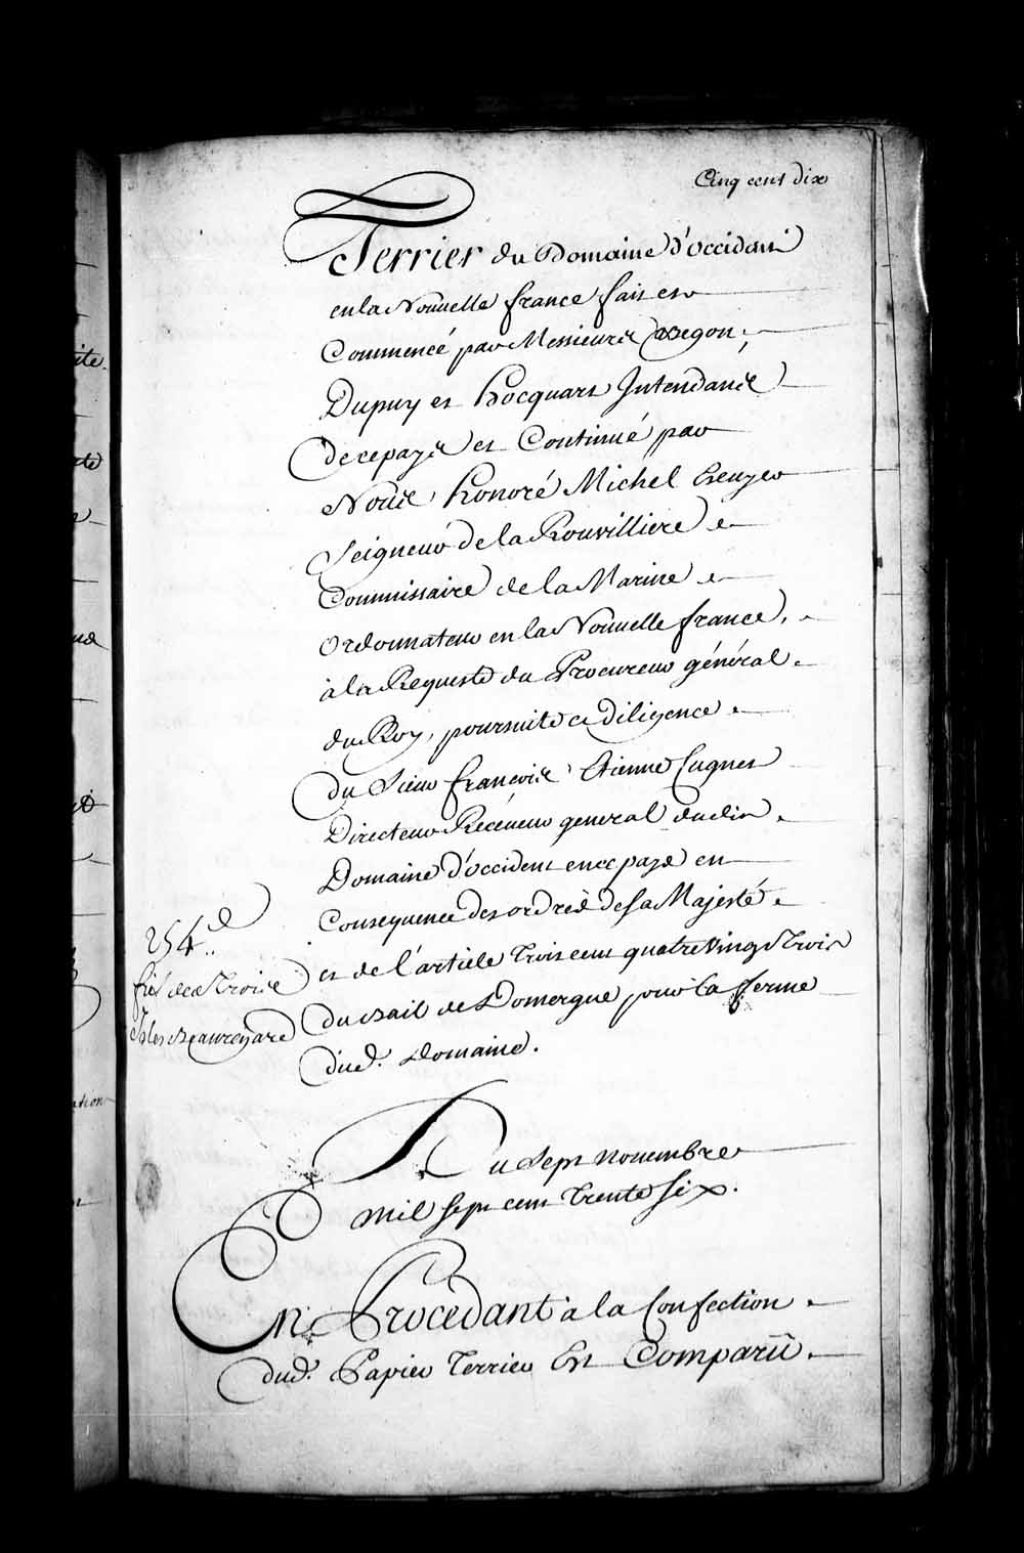 Cinq cent dix
Terrier du Domaine d'occident
en la Nouuelle france fait et
Commencé par Messieurs Begon,
Dupuy et Hocquart Intendants
de ce pays et Continué par
Nous honoré Michel
Seigneur de la Rouvilliere
Commissaire de la Marine
ordonnateur en la Nouuelle france,
à la Requeste du Procureur général
du Roy, poursuite et diligence
du Sieur françois Etienne Cugnet
Directeur Réceueur general dudit
Domaine d'occident en ce pays en
Consequence des ordres de sa Majesté
et de l'article Trois cent quatre vingt Trois
du Bail de Domergue pour la ferme
dud. Domaine.
254.e
fief des Trois
Isles Beauregard
Du Sept Nouembre
mil sept cent Trente Six.
En Procedant à la Confection
dud. Papier Terrier Est Comparu